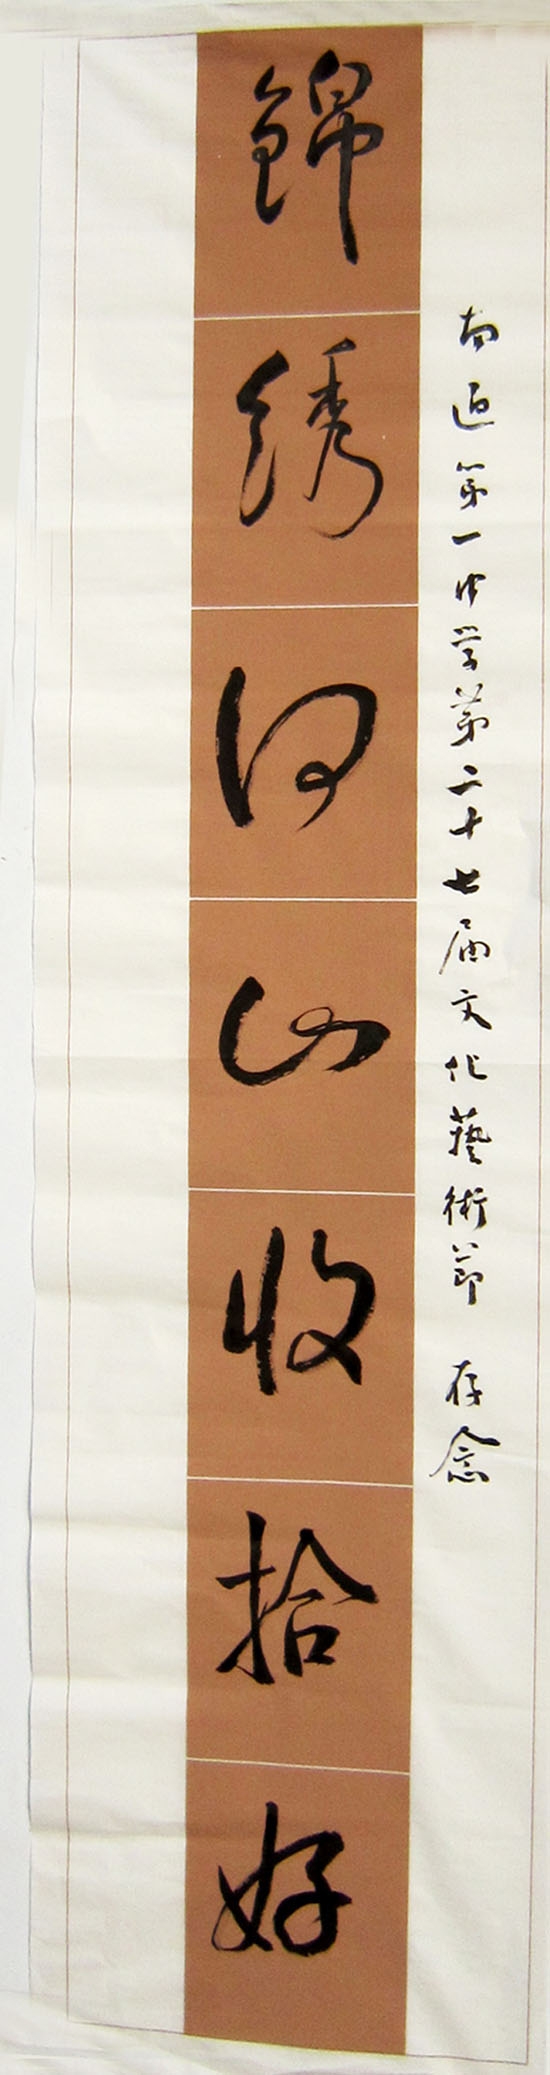 南通第一中学第二十七届文化藝術節 存念
錦绣河山收拾好